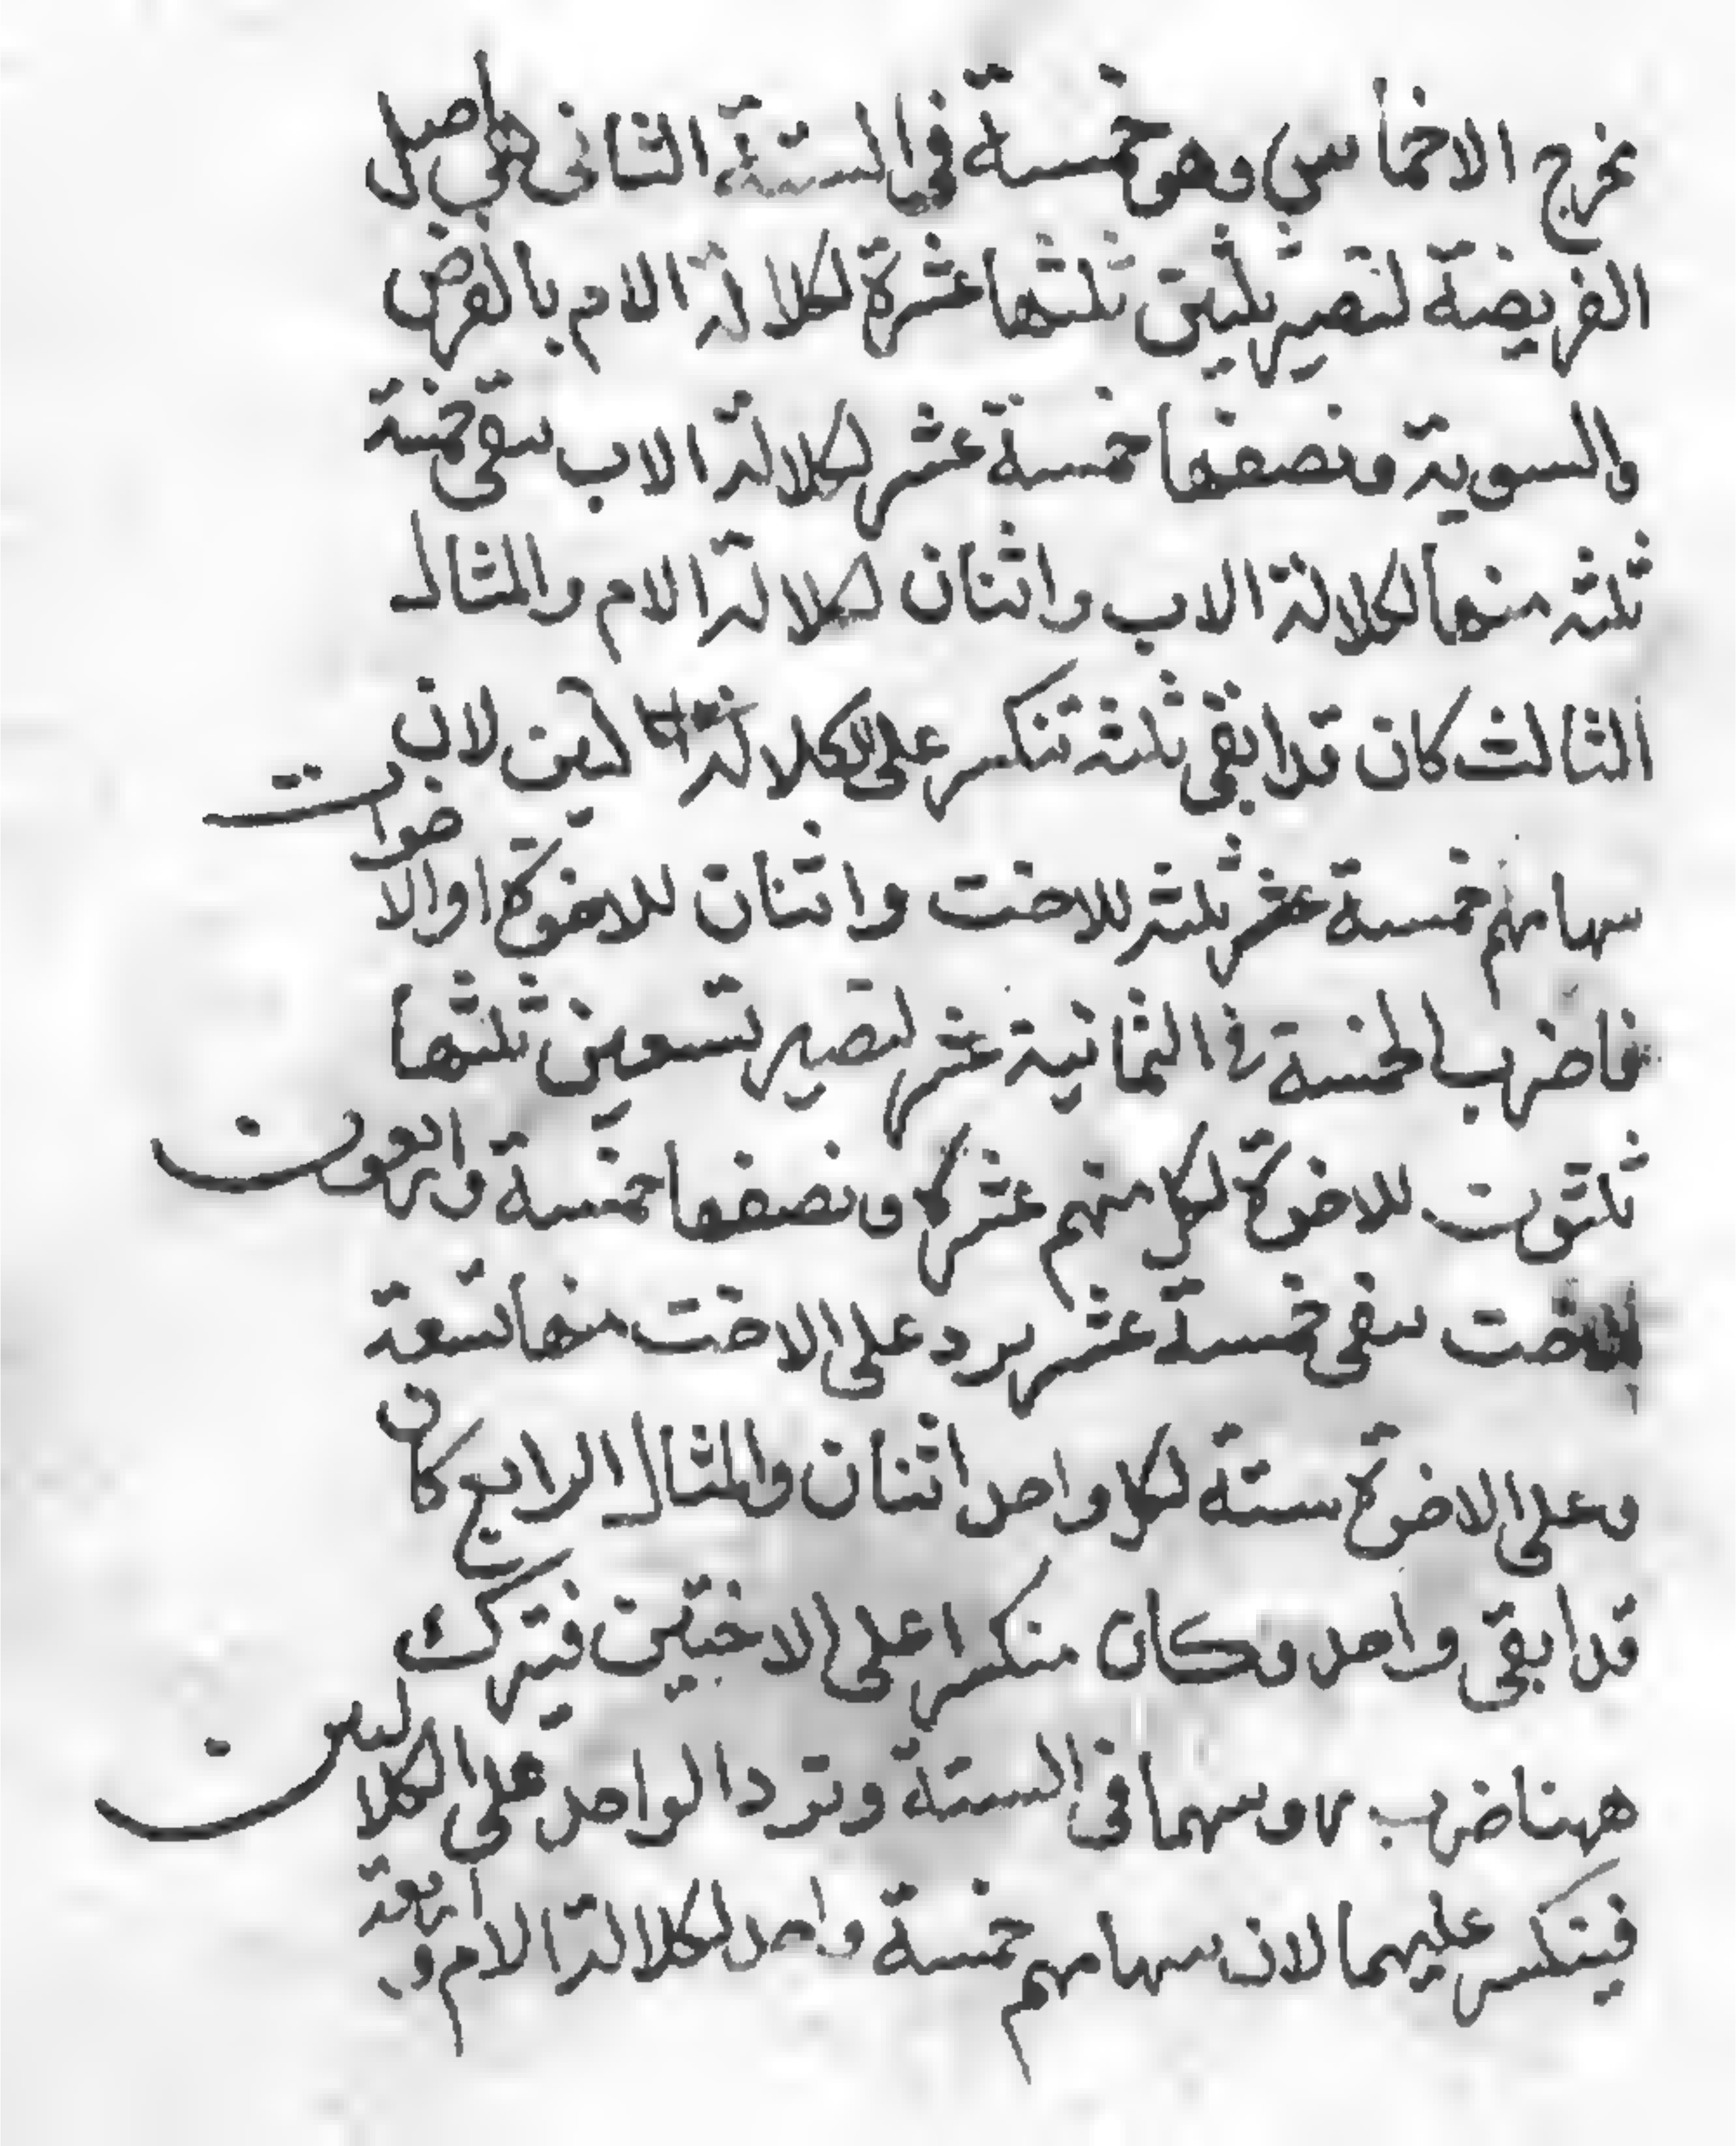 مخرج الاخماس وهو خمسة في الستة الثاني هي اصل
الفريضة لتصير ثلثين ثلثها عشرة لكلالة الام بالفرض
والسوية ونصفها خمسة عشر لكلالة الاب يبقى خمسة
ثلثة منها لكلالة الاب واثنان لكلالة الام والمثال
الثالث كان قد ابقى ثلثة تنكسر على الكلالتين لان
سهامهم خمسة عشر ثلثة للاخت واثنان للاخوة او الاخوات
فاضرب الخمسة في الثمانية عشر لتصير تسعين ثلثها
ثلثون للاخوة لكل منهم عشرة ونصفها خمسة واربعون
للاخت يبقى خمسة عشر يرد على الاخت منها تسعة
وعلى الاخوة ستة لكل واحد اثنان والمثال الرابع كان
قد ابقى واحد وكان منكسرا على الاختين فيترك
ههنا ضرب روسهما في الستة وترد الواحد على الكلالتين
فيتكسر عليهما لان سهامهم خمسة واحد لكلالة الام واربعة